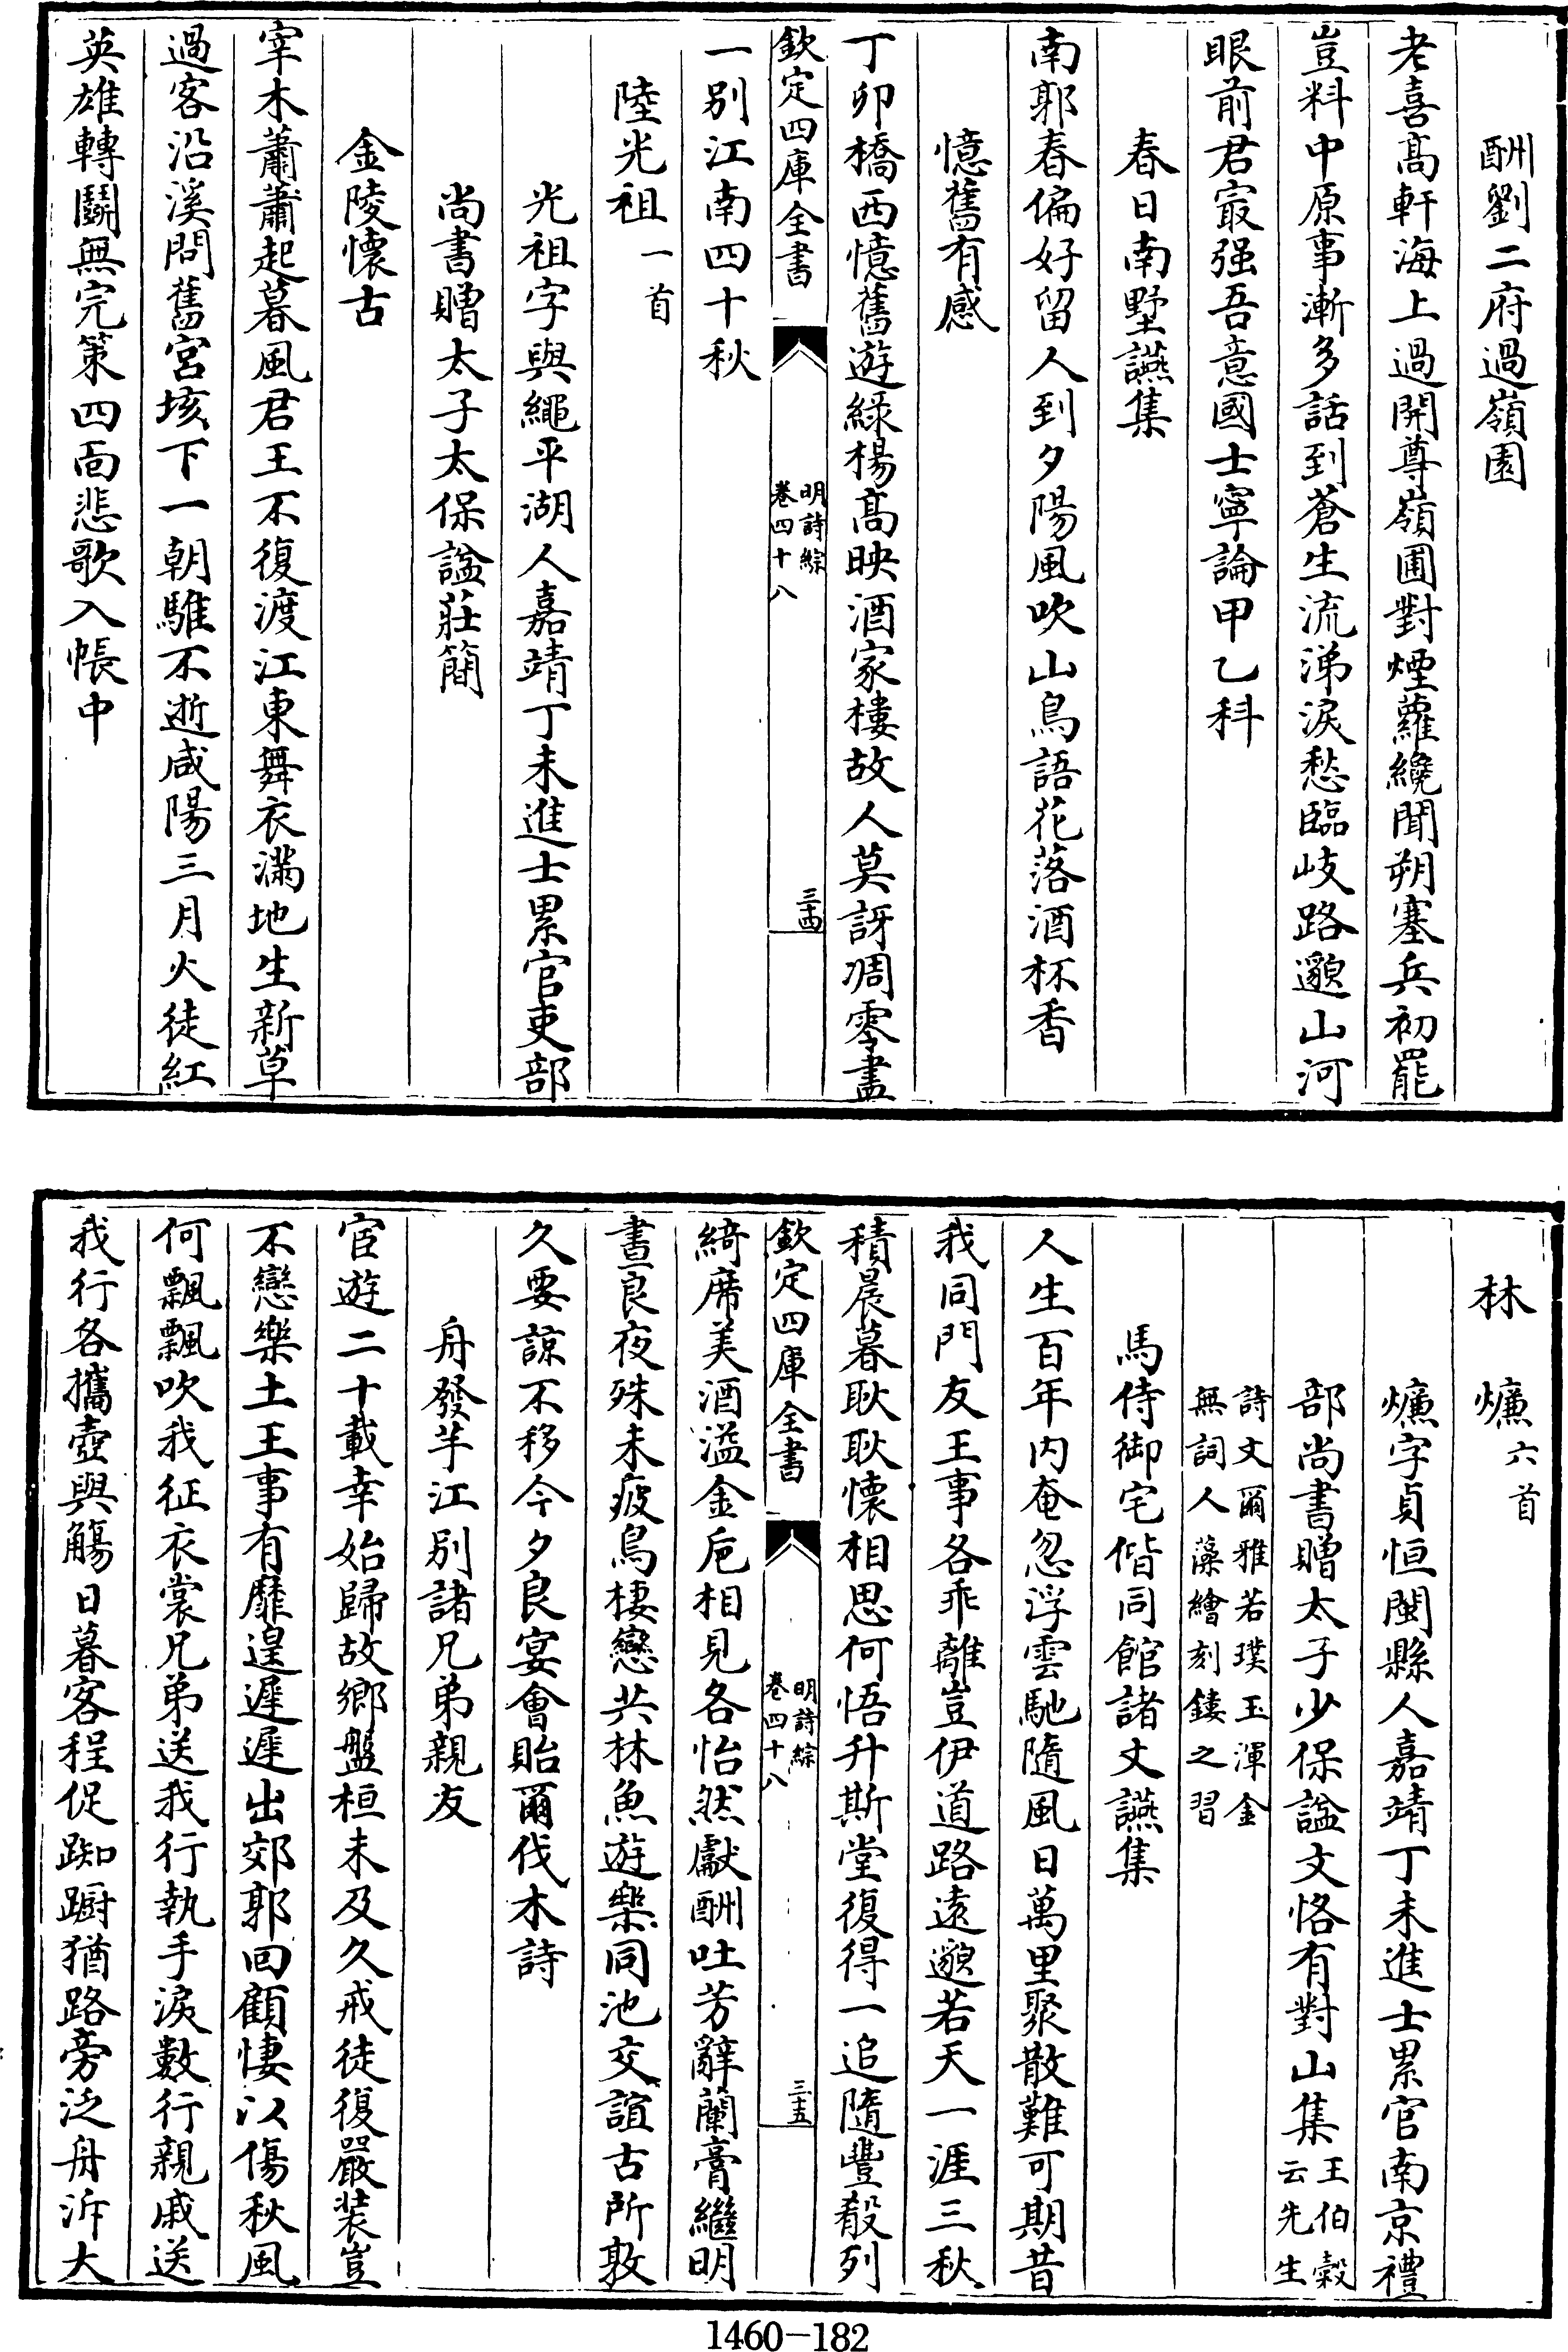 酬劉二府過嶺園
老喜髙軒海上過開尊嶺圃對煙蘿纔聞朔塞兵初罷
豈料中原事漸多話到蒼生流涕淚愁臨岐路邈山河
眼前君最强吾意國士寧論甲乙科
春日南墅讌集
南郭春偏好留人到夕陽風吹山鳥語花落酒杯香
憶舊有感
丁卯橋西憶舊遊緑楊髙映酒家樓故人莫訝凋零盡
欽定四庫全書
明詩綜
卷四十八
三十四
一别江南四十秋
陸光祖一首
光祖字與繩平湖人嘉靖丁未進士累官吏部
尚書贈太子太保諡莊簡
金陵懷古
宰木蕭蕭起暮風君王不復渡江東舞衣滿地生新草
過客沿溪問舊宫垓下一朝騅不逝咸陽三月火徒紅
英雄轉鬭無完策四面悲歌入帳中
林㷿六首
㷿字貞恒閩縣人嘉靖丁未進士累官南京禮
部尚書贈太子少保諡文恪有對山集王伯榖
云先生
詩文爾雅若璞玉渾金
無詞人藻繪刻鏤之習
馬侍御宅偕同館諸丈讌集
人生百年内奄忽浮雲馳隨風日萬里聚散難可期昔
我同門友王事各乖離豈伊道路遠邈若天一涯三秋
積晨暮耿耿懷相思何悟升斯堂復得一追隨豐殽列
欽定四庫全書
明詩綜
卷四十八
三十五
綺席美酒溢金巵相見各怡然獻酬吐芳辭蘭膏繼明
晝良夜殊未疲鳥棲戀共林魚遊樂同池交誼古所敦
久要諒不移今夕良宴會貽爾伐木詩
舟發芋江别諸兄弟親友
宦遊二十載幸始歸故鄉盤桓未及久戒徒復嚴装豈
不戀樂土王事有靡遑遲遲出郊郭回顧悽以傷秋風
何飄飄吹我征衣裳兄弟送我行執手淚數行親戚送
我行各攜壺與觴日暮客程促踟蹰猶路旁泛舟泝大
1460-182